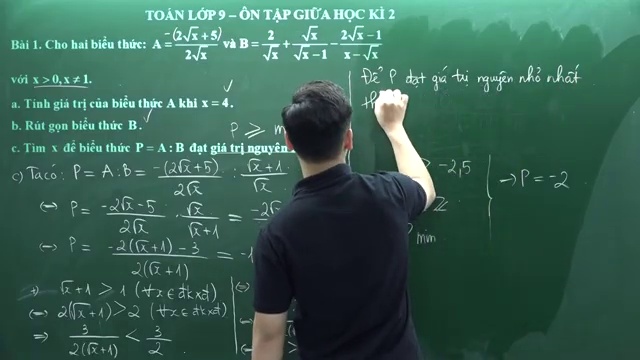 TOÁN LỚP 9 – ÔN TẬP GIỮA HỌC KÌ 2
Bài 1. Cho hai biểu thức: A = -(2√x + 5) / 2√x và B = 2/√x + √x/(√x - 1) - (2√x - 1)/(x - √x)
với x > 0, x ≠ 1.
a. Tính giá trị của biểu thức A khi x = 4.
b. Rút gọn biểu thức B.
c. Tìm x để biểu thức P = A : B đạt giá trị nguyên
P ≥ m
c) Ta có: P = A : B = -(2√x + 5) / 2√x : (√x + 1)/√x
⇔ P = (-2√x - 5) / 2√x . √x/(√x + 1) = -2√
⇔ P = (-2(√x + 1) - 3) / 2(√x + 1) = -1
+) √x + 1 > 1 (∀x ∈ đkxđ)
⇔ 2(√x + 1) > 2 (∀x ∈ đkxđ)
⇒ 3 / 2(√x + 1) < 3/2
Để P đạt giá trị nguyên nhỏ nhất
> -2,5
ℤ
min
→ P = -2